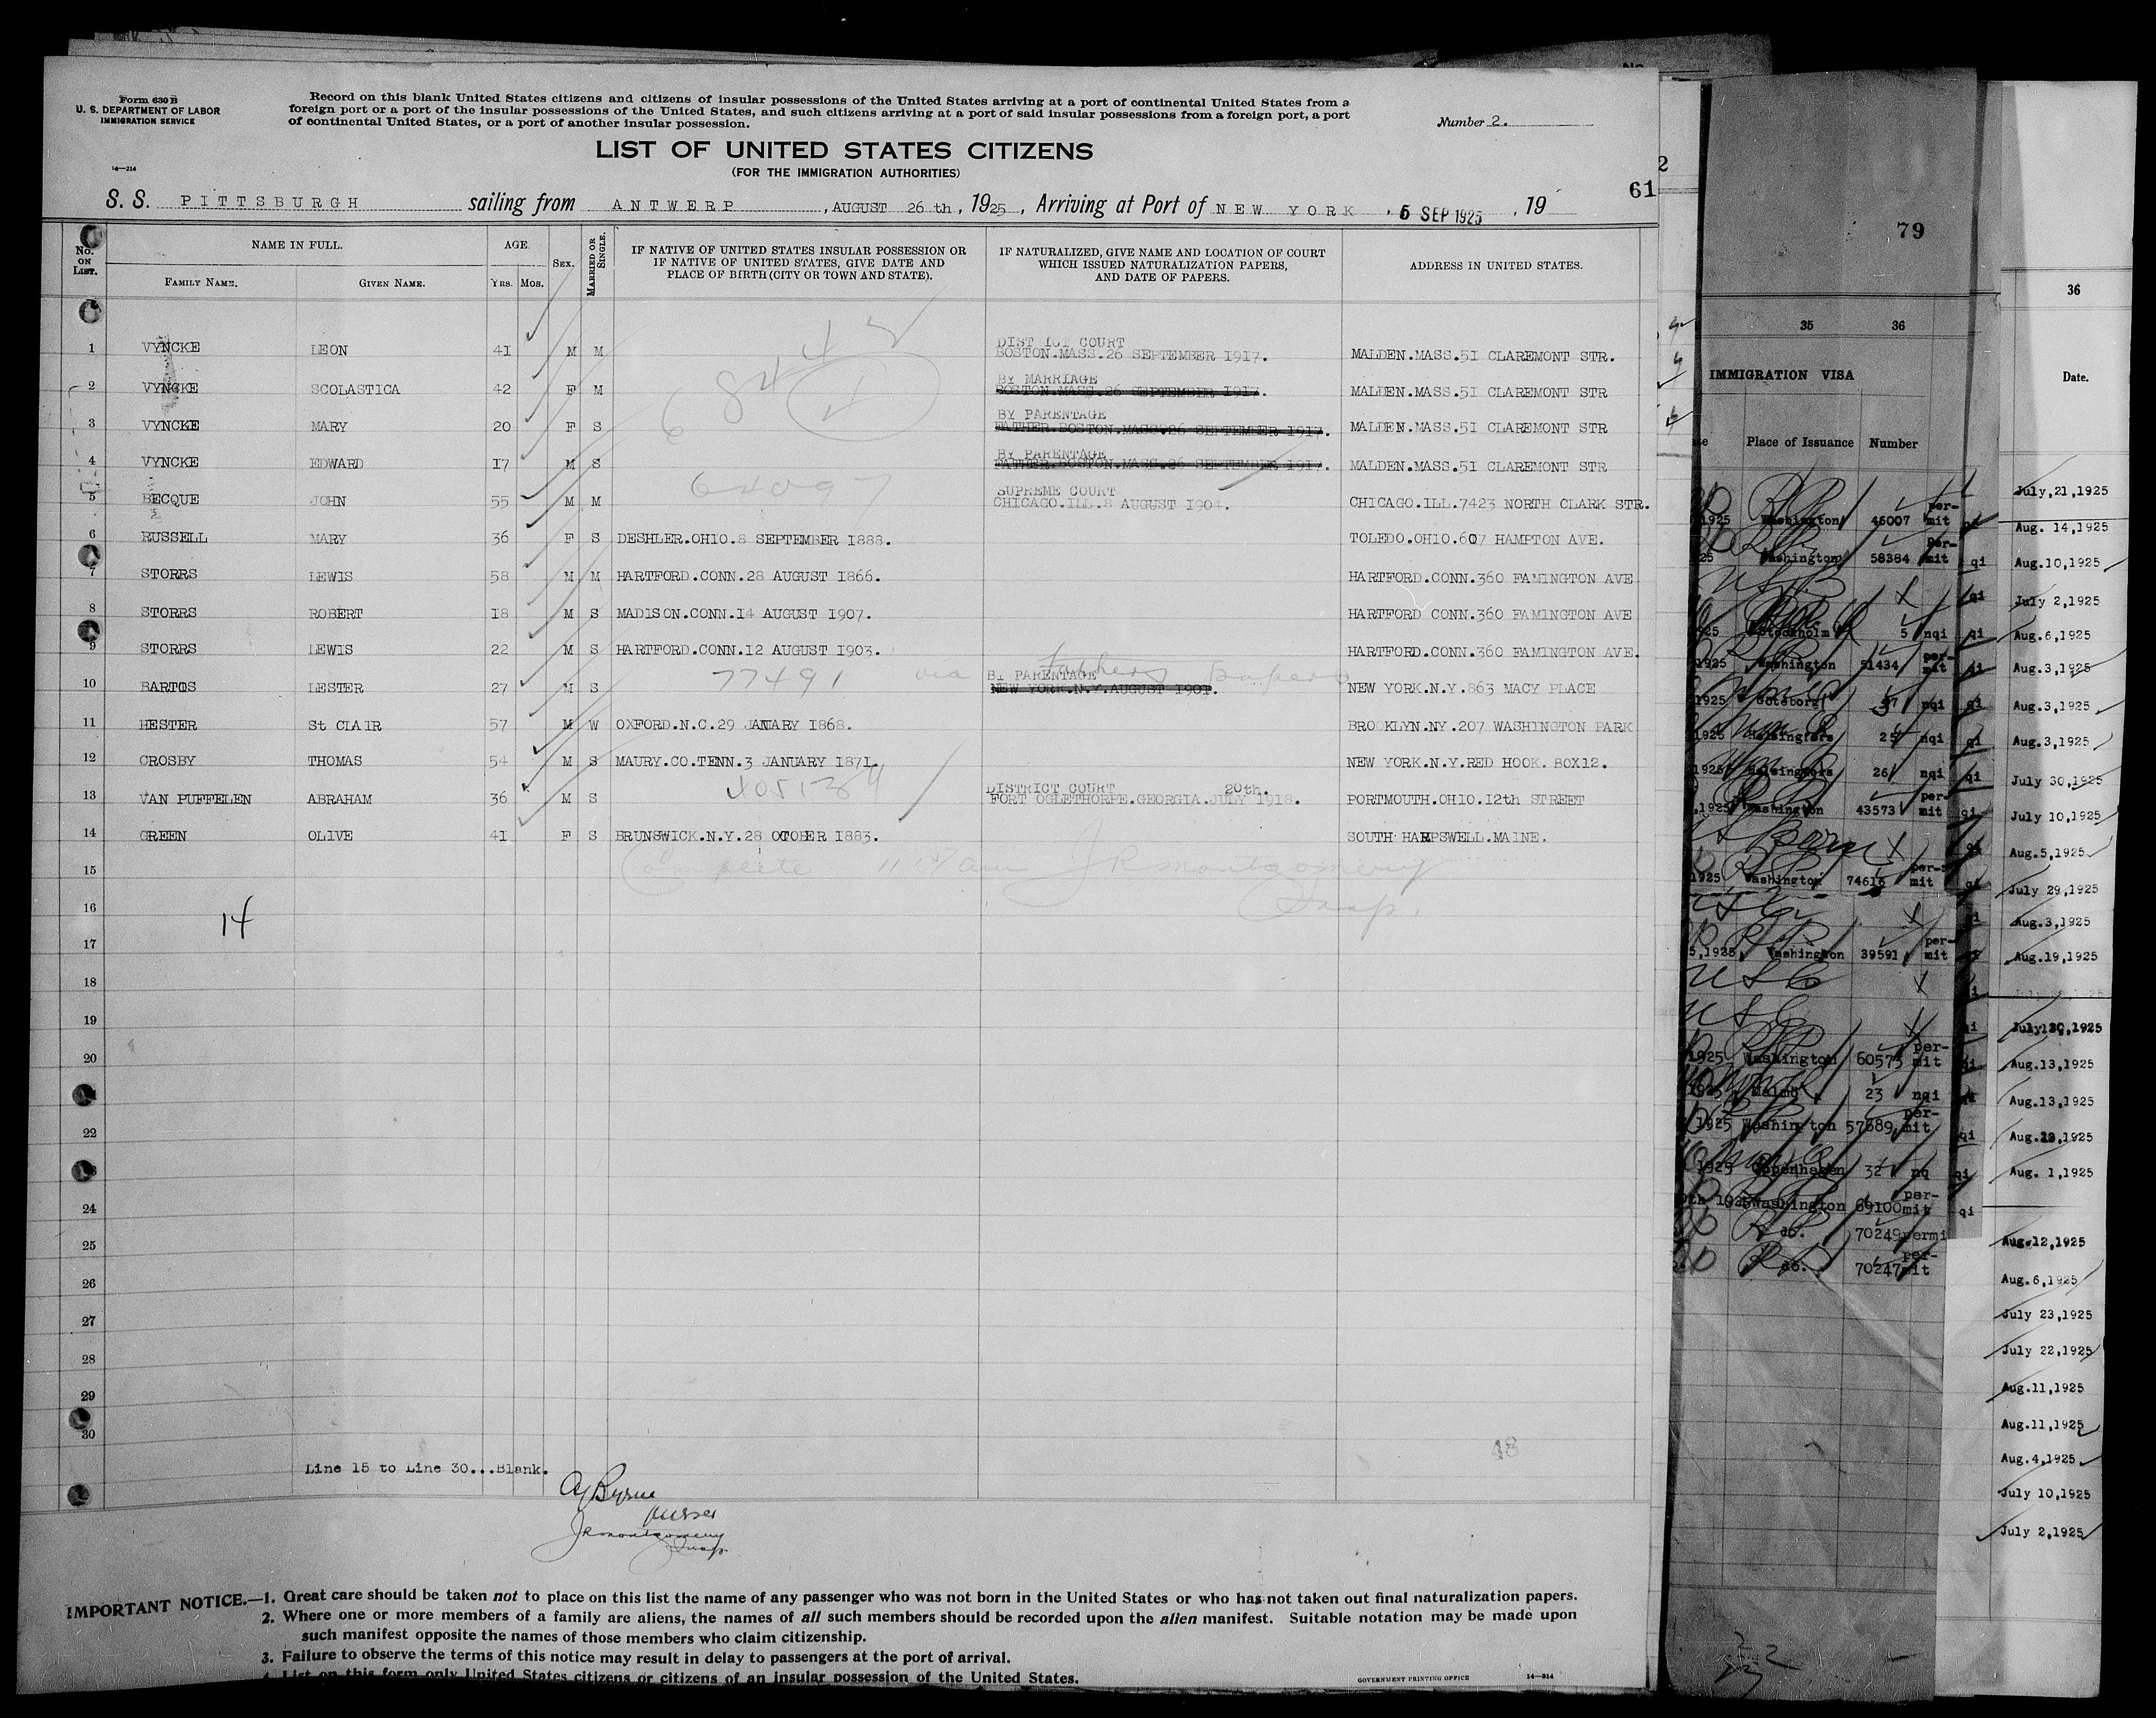 Form 630 B
U. S. DEPARTMENT OF LABOR
IMMIGRATION SERVICE
14—214
Record on this blank United States citizens and citizens of insular possessions of the United States arriving at a port of continental United States from a
foreign port or a port of the insular possessions of the United States, and such citizens arriving at a port of said insular possessions from a foreign port, a port
of continental United States, or a port of another insular possession.
Number 2.
LIST OF UNITED STATES CITIZENS
(FOR THE IMMIGRATION AUTHORITIES)
61
S. S. PITTSBURGH sailing from ANTWERP, AUGUST 26th, 1925, Arriving at Port of NEW YORK, 5 SEP 1925, 19
No. ON LIST. NAME IN FULL. AGE. SEX. MARRIED OR SINGLE. IF NATIVE OF UNITED STATES INSULAR POSSESSION OR IF NATIVE OF UNITED STATES, GIVE DATE AND PLACE OF BIRTH (CITY OR TOWN AND STATE). IF NATURALIZED, GIVE NAME AND LOCATION OF COURT WHICH ISSUED NATURALIZATION PAPERS, AND DATE OF PAPERS. ADDRESS IN UNITED STATES.
FAMILY NAME. GIVEN NAME. YRS. MOS.
DIST ICT COURT
1 VYNCKE LEON 41 M M BOSTON.MASS.26 SEPTEMBER 1917. MALDEN.MASS.51 CLAREMONT STR.
BY MARRIAGE
2 VYNCKE SCOLASTICA 42 F M BOSTON.MASS.26 SEPTEMBER 1917. MALDEN.MASS.51 CLAREMONT STR
BY PARENTAGE
3 VYNCKE MARY 20 F S FATHER.BOSTON.MASS.26 SEPTEMBER 1917. MALDEN.MASS.51 CLAREMONT STR
BY PARENTAGE
4 VYNCKE EDWARD 17 M S FATHER.BOSTON.MASS.26 SEPTEMBER 1917. MALDEN.MASS.51 CLAREMONT STR
64097
SUPREME COURT
5 BECQUE JOHN 55 M M CHICAGO.ILL.8 AUGUST 1904. CHICAGO.ILL.7423 NORTH CLARK STR.
6 RUSSELL MARY 36 F S DESHLER.OHIO.8 SEPTEMBER 1888. TOLEDO.OHIO.607 HAMPTON AVE.
7 STORRS LEWIS 58 M M HARTFORD.CONN.28 AUGUST 1866. HARTFORD.CONN.360 FAMINGTON AVE
8 STORRS ROBERT 18 M S MADISON.CONN.14 AUGUST 1907. HARTFORD CONN.360 FAMINGTON AVE
9 STORRS LEWIS 22 M S HARTFORD.CONN.12 AUGUST 1903. HARTFORD.CONN.360 FAMINGTON AVE.
77491 via Fathers papers
BY PARENTAGE
10 BARTOS LESTER 27 M S NEW YORK.N.Y.AUGUST 1901. NEW YORK.N.Y.863 MACY PLACE
11 HESTER St CLAIR 57 M W OXFORD.N.C.29 JANUARY 1868. BROOKLYN.NY.207 WASHINGTON PARK
12 CROSBY THOMAS 54 M S MAURY.CO.TENN.3 JANUARY 1871. NEW YORK.N.Y.RED HOOK. BOX12.
DISTRICT COURT 20th.
13 VAN PUFFELEN ABRAHAM 36 M S FORT OGLETHORPE.GEORGIA.JULY 1918. PORTMOUTH.OHIO.12th STREET
14 GREEN OLIVE 41 F S BRUNSWICK.N.Y.28 OCTOBER 1883. SOUTH HARPSWELL.MAINE.
Complete 11:57 am JRMontgomery
Insp.
15
16
14
17
18
19
20
22
24
25
26
27
28
29
30
48
Line 15 to Line 30...Blank.
Byrne
Purser
JRMontgomery
Insp
IMPORTANT NOTICE.—1. Great care should be taken not to place on this list the name of any passenger who was not born in the United States or who has not taken out final naturalization papers.
2. Where one or more members of a family are aliens, the names of all such members should be recorded upon the alien manifest. Suitable notation may be made upon
such manifest opposite the names of those members who claim citizenship.
3. Failure to observe the terms of this notice may result in delay to passengers at the port of arrival.
4. List on this form only United States citizens or citizens of an insular possession of the United States.
GOVERNMENT PRINTING OFFICE 14—214
2
79
35 36
IMMIGRATION VISA
Place of Issuance Number
1925 Washington 46007 permit
25 Washington 58384 permit qi
25 Stockholm 5 nqi qi
1925 Washington 51434 permit qi
1925 Goteborg nqi qi
1925 Helsingfors 25 nqi qi
1925 Helsingfors 26 nqi qi
1925 Washington 43573 permit qi
1925 Washington 74616 permit qi
5,1925 Washington 39591 permit
USC
USC
1925 Washington 60573 permit qi
1925 Malmo 23 nqi
1925 Washington 57689 permit qi
1925 Copenhagen 32 nq qi
1925 Washington 69100 permit qi
do. 70249 permi
do. 70247 permit
36
Date.
July,21,1925
Aug. 14,1925
Aug.10,1925
July 2,1925
Aug.6,1925
Aug.3,1925
Aug.3,1925
Aug.3,1925
July 30,1925
July 10,1925
Aug.5,1925
July 29,1925
Aug.3,1925
Aug.19,1925
Aug.13,1925
Aug.13,1925
Aug. 1,1925
Aug.12,1925
Aug.6,1925
July 23,1925
July 22,1925
Aug.11,1925
Aug.11,1925
Aug.4,1925
July 10,1925
July 2,1925